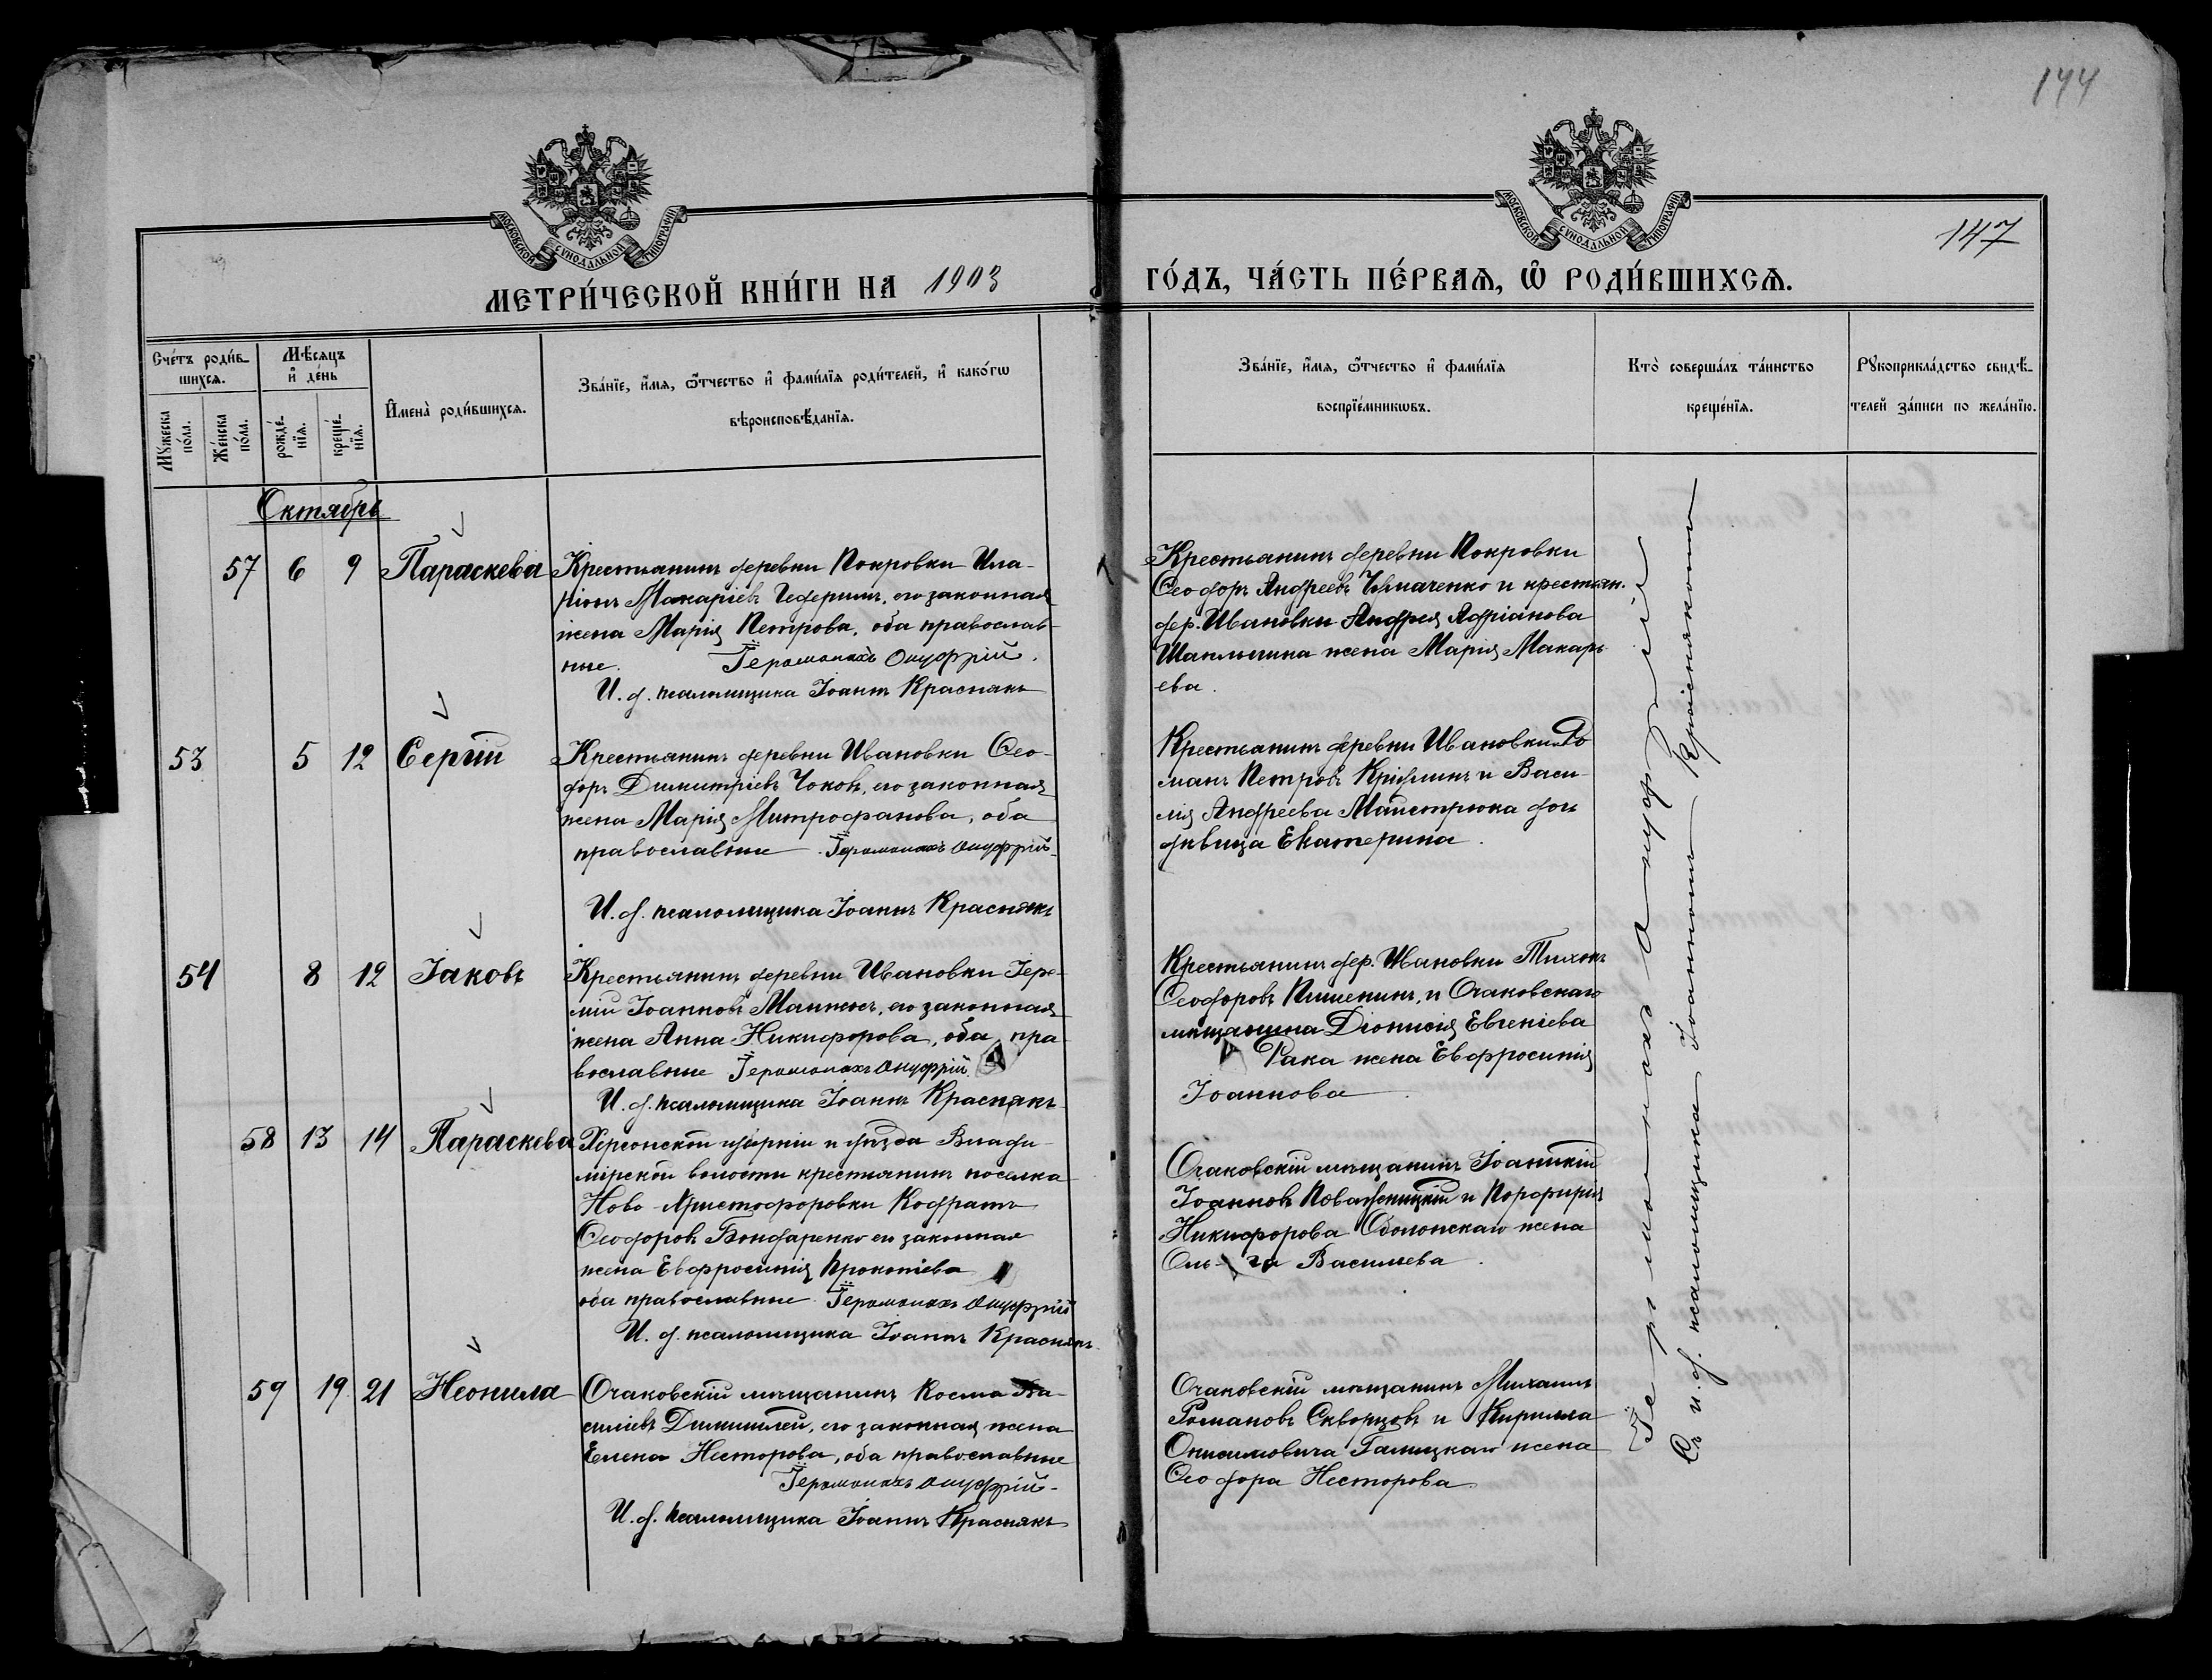 144
147
МОСКОВСКОЙ СѴНОДАЛЬНОЙ ТИПОГРАФІИ
МОСКОВСКОЙ СѴНОДАЛЬНОЙ ТИПОГРАФІИ
МЕТРИ́ЧЕСКОЙ КНИ́ГИ НА 1903 ГО́ДЪ, ЧА́СТЬ ПЕ́РВАЯ, Ѡ҆ РОДИ́ВШИХСЯ.
Сче́тъ роди́в-
шихся.
Мꙋжеска по́ла.
Же́нска по́ла.
Мѣ́сяцъ
и҆ де́нь
рожде́-
нїя.
креще́-
нїя.
И҆мена̀ роди́вшихся.
Зва́нїе, и҆́мя, ѻ҆́тчество и҆ фами́лїя роди́телей, и҆ како́гѡ
вѣроисповѣ́данїя.
Зва́нїе, и҆́мя, ѻ҆́тчество и҆ фами́лїя
воспрїе́мникѡвъ.
Кто̀ соверша́лъ та́инство
креще́нїя.
Рꙋкоприкла́дство свидѣ́-
телей за́писи по жела́нїю.
Октябрь
57 6 9 Параскева
Крестьянинъ деревни Покровки Ила-
ріонъ Макаріевъ его законная
жена Марія Петрова, оба православ-
ные. Іеромонахъ Онуфрій.
И. д. псаломщика Іоаннъ Краснякъ
Крестьянинъ деревни Покровки
Ѳеодоръ Андреевъ и крестьян.
дер. Ивановки Андрея Адріанова
жена Марія Макарь-
ева.
53 5 12 Сергій
Крестьянинъ деревни Ивановки Ѳео-
доръ Димитріевъ Чоковъ, его законная
жена Марія Митрофанова, оба
православные Іеромонахъ Онуфрій
И. д. псаломщика Іоаннъ Краснякъ
Крестьянинъ деревни Ивановки Ро-
манъ Петровъ и Васи-
лія Андреева Майстрюка дочь
дѣвица Екатерина.
54 8 12 Іаковъ
Крестьянинъ деревни Ивановки Іере-
мій Іоанновъ его законная
жена Анна Никифорова, оба пра-
вославные Іеромонахъ Онуфрій
И. д. псаломщика Іоаннъ Краснякъ
Крестьянинъ дер. Ивановки Тихонъ
Ѳеодоровъ Пшенинъ, и Очаковскаго
мѣщанина Діонисія Евгеніева
Рака жена Евфросинія
Іоаннова
58 13 14 Параскева
Херсонской губерніи и уѣзда Влади-
мірской волости крестьянинъ поселка
Ново-Христофоровки Кодратъ
Ѳеодоровъ Бондаренко его законная
жена Евфросинія Прокопіева
оба православные Іеромонахъ Онуфрій
И. д. псаломщика Іоаннъ Краснякъ
Очаковскій мѣщанинъ Іоаникій
Іоанновъ и Порфирія
Никифорова Оболонскаго жена
Оль-га Васильева.
59 19 21 Неонила
Очаковскій мѣщанинъ Косма Ва-
силіевъ его законная жена
Елена Несторова, оба православные
Іеромонахъ Онуфрій
И. д. псаломщика Іоаннъ Краснякъ
Очаковскій мѣщанинъ Михаилъ
Романовъ Скворцовъ и Кирилла
Онисимовича Галицкаго жена
Ѳеодора Несторова
Іеромонахъ Онуфрій
Съ и. д. псаломщика Іоанномъ Краснякомъ